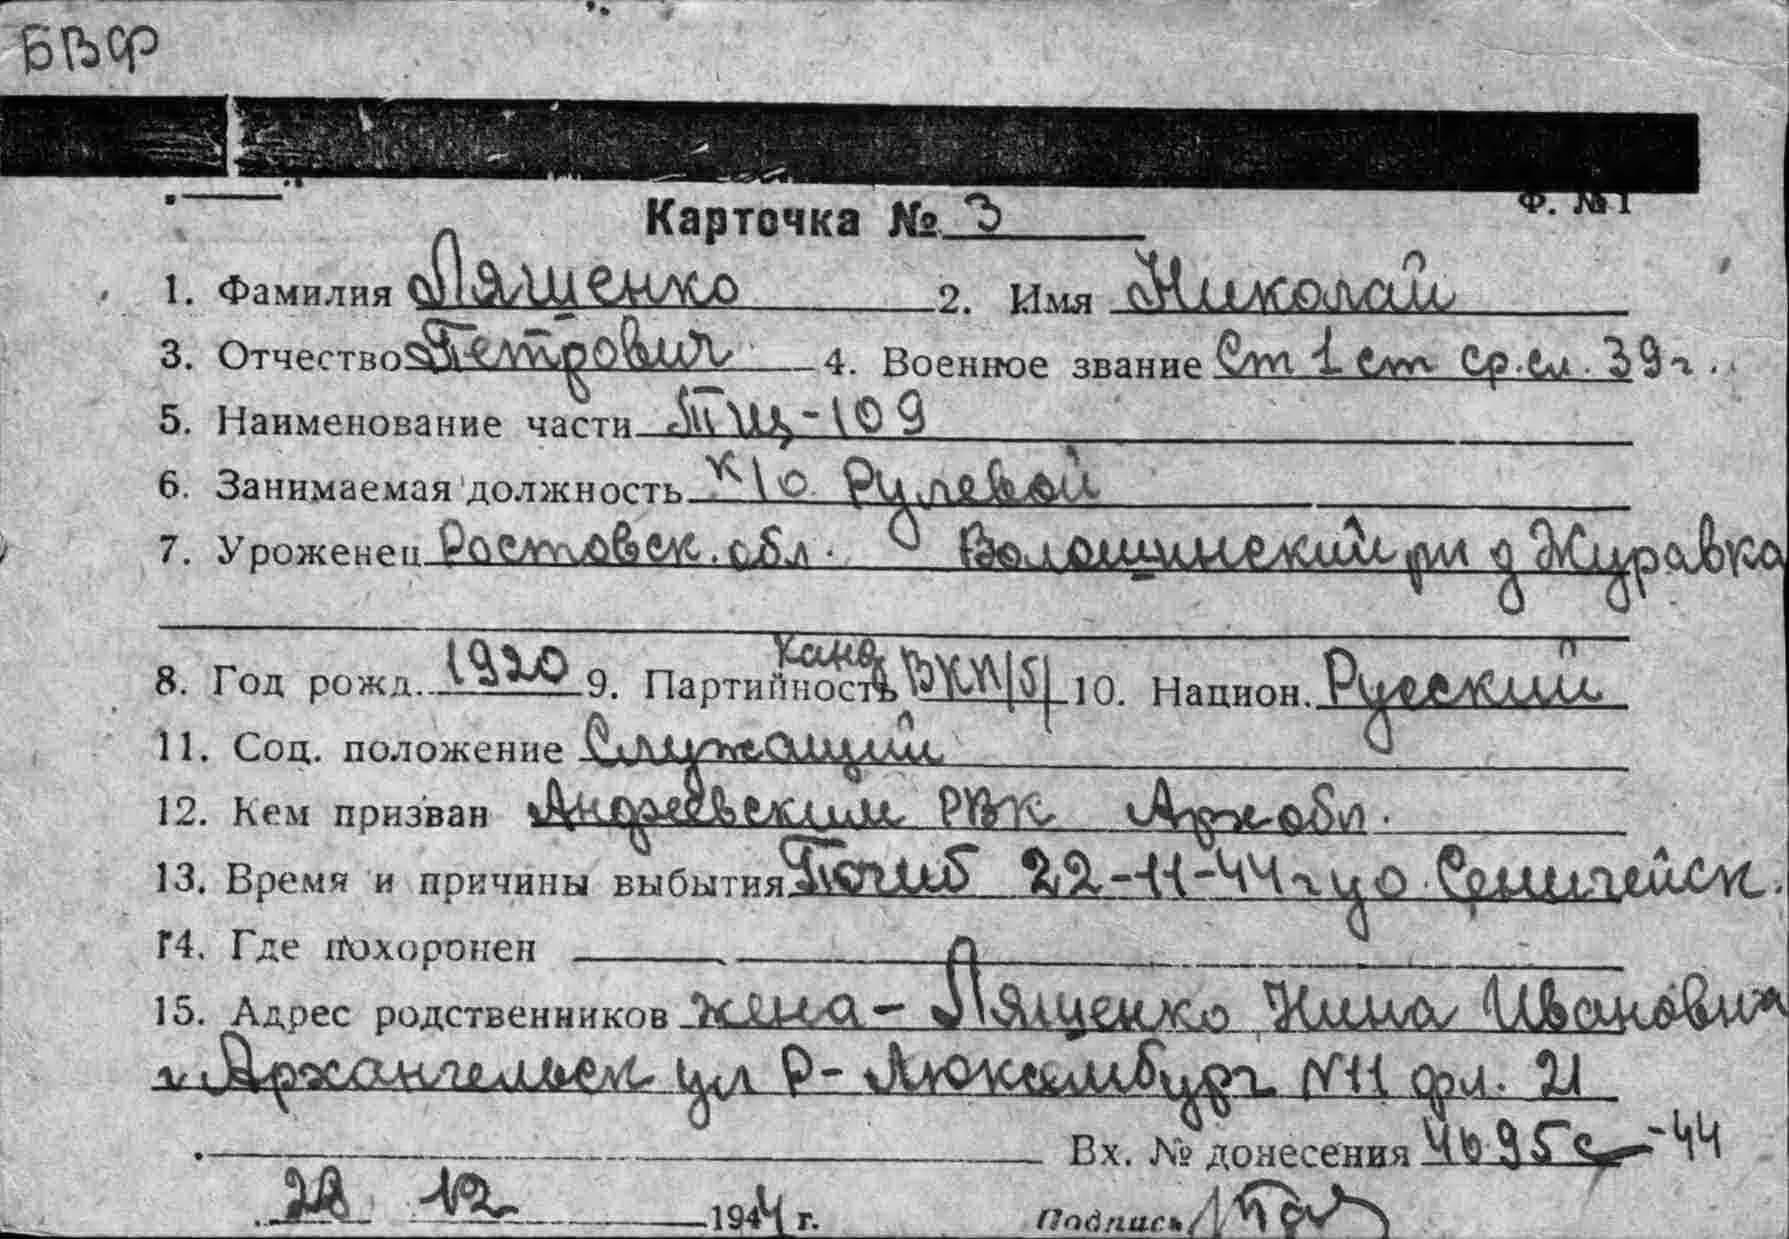 БВФ
Ф. №1
Карточка № 3
1. Фамилия Лященко 2. Имя Николай
3. Отчество Петрович 4. Военное звание Ст 1 ст ср.сл. 39г.
5. Наименование части ТЩ-109
6. Занимаемая должность к/о Рулевой
7. Уроженец Ростовск. обл. Волошинский рн д Журавка
8. Год рожд. 1920 9. Партийность Канд ВКП/б/ 10. Национ. Русский
11. Соц. положение Служащий
12. Кем призван Андреевским РВК Арх обл.
13. Время и причины выбытия Погиб 22-11-44г у о. Сенигейск.
14. Где похоронен
15. Адрес родственников жена - Лященко Нина Ивановна
г. Архангельск ул Р-Люксембург N11 фл. 21
Вх. № донесения 4695с-44
28 12 1944 г. Подпись